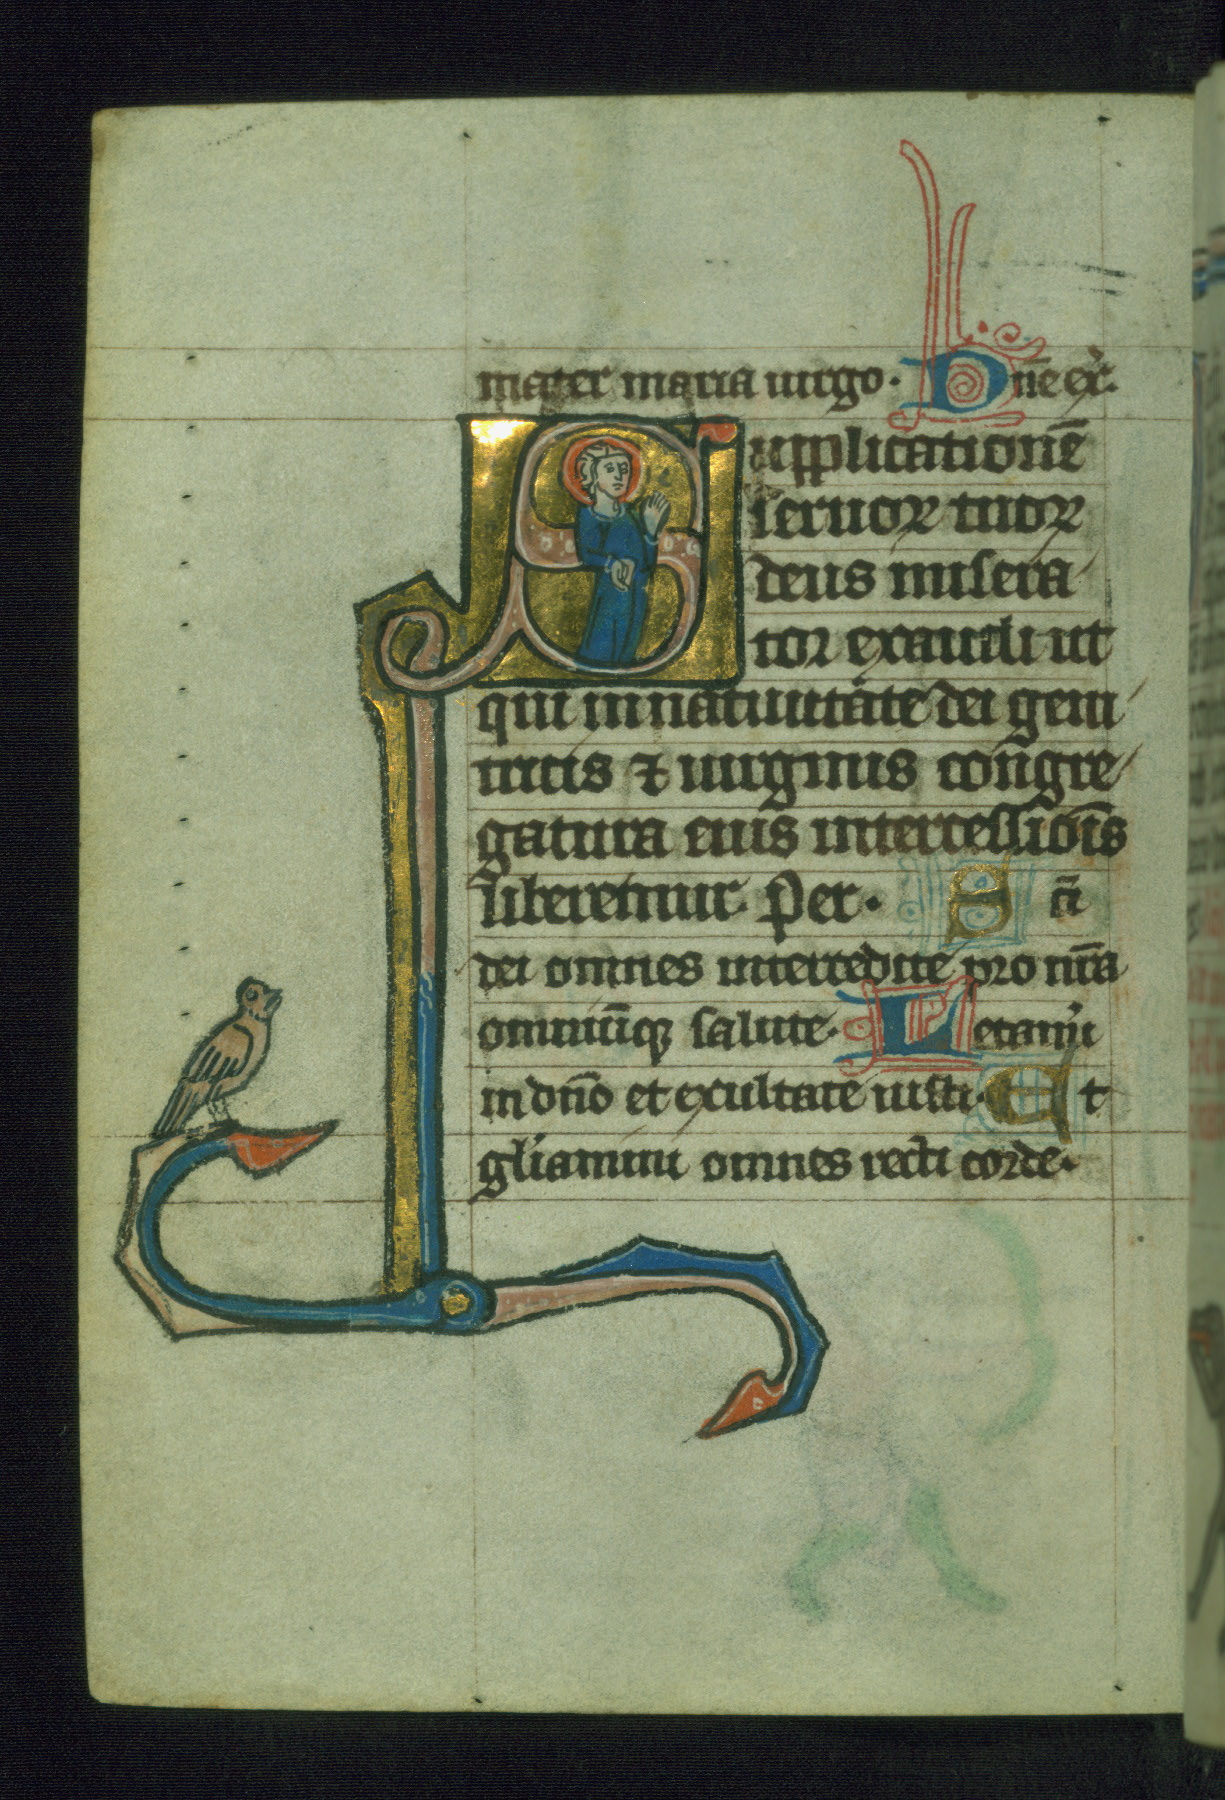 mater maria uirgo. Dn̄e ex̄.
Supplicationē
seruoꝝ tuoꝝ
deus misera
tor exaudi ut
qui in natiuitate dei geni
tricis ⁊ uirginis congre
gamur eius intercessiōīs
liberemur. Per. Sc̄i
dei omnes intercedite pro nr̄a
omniūq; salute. Letami
in dn̄o et exultate iusti. Et
gl̄iamini omnes recti corde.